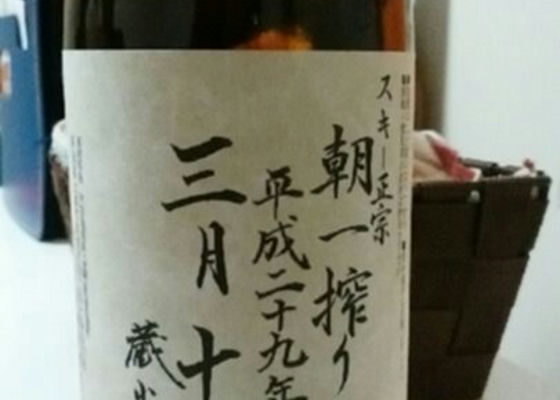 スキー正宗
朝一搾り
平成二十九年
三月十
蔵出